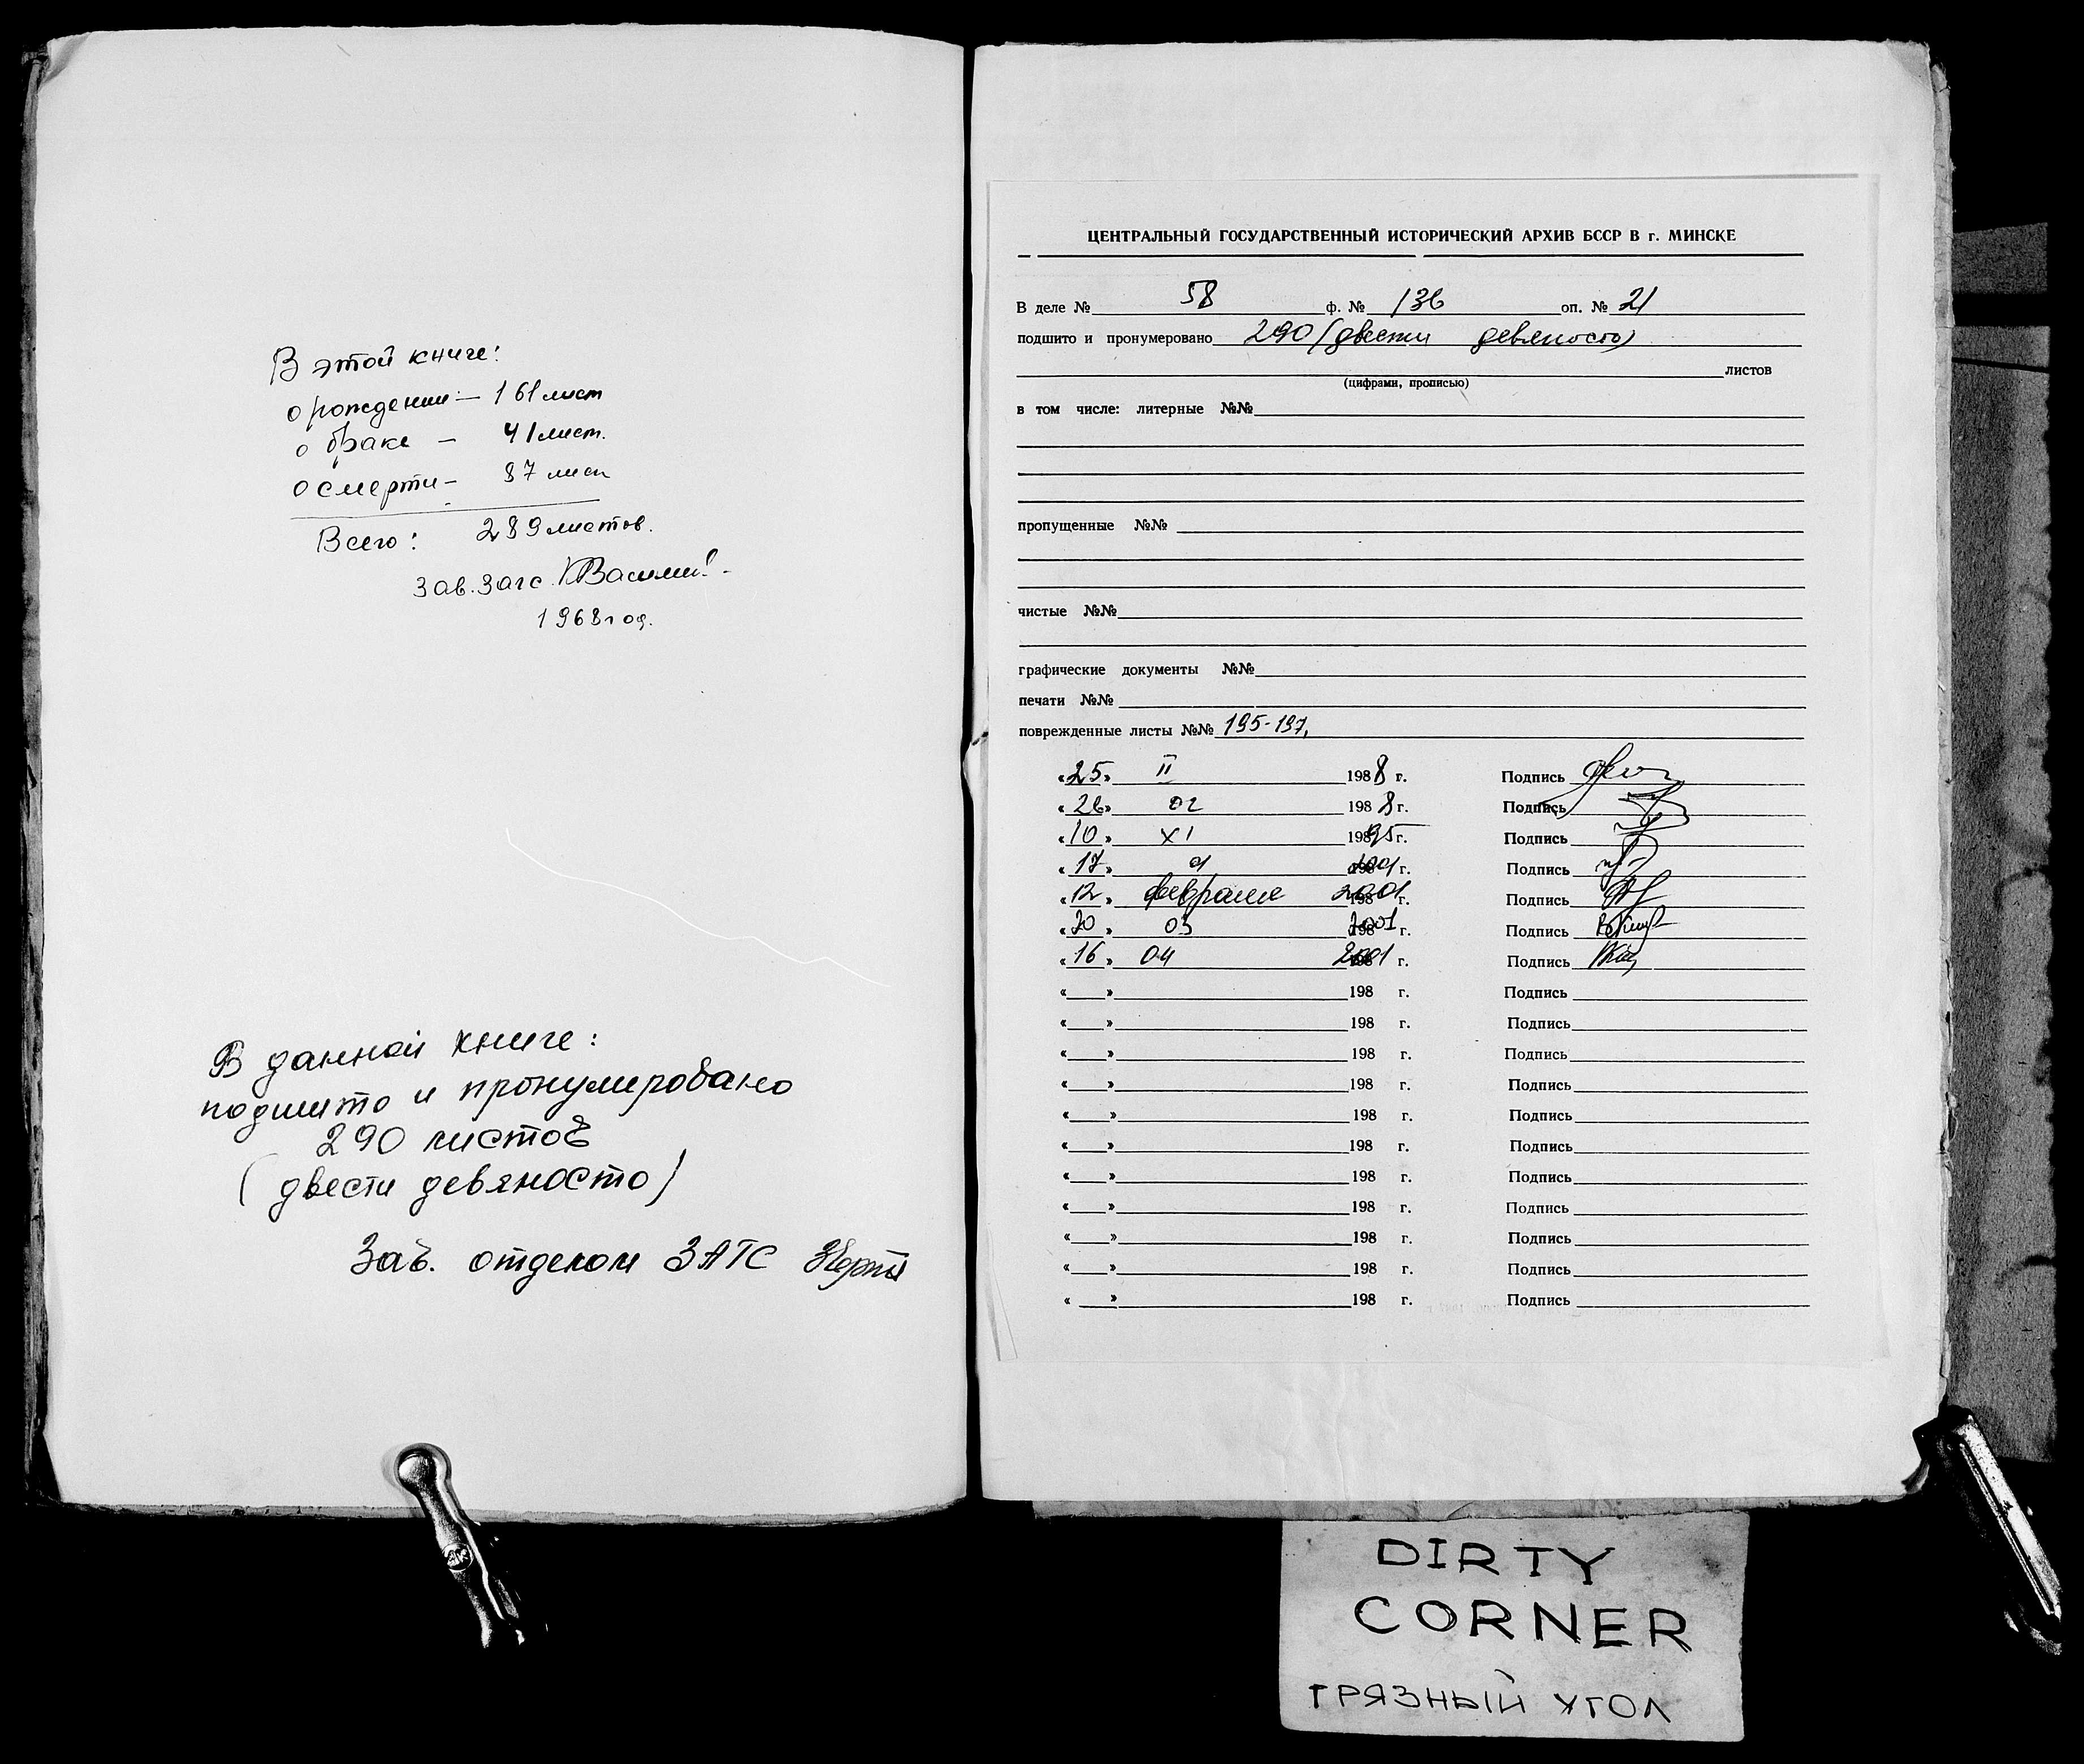 В этой книге:
о рождении — 161 лист
о браке — 41 лист.
о смерти — 87 лист
Всего: 289 листов.
Зав. загс.
1968 год.
В данной книге:
подшито и пронумеровано
290 листов
(двести девяносто)
Зав. отделом ЗАГС
ЦЕНТРАЛЬНЫЙ ГОСУДАРСТВЕННЫЙ ИСТОРИЧЕСКИЙ АРХИВ БССР В г. МИНСКЕ
В деле № 58 ф. № 136 оп. № 21
подшито и пронумеровано 290 (двести девяносто)
листов
(цифрами, прописью)
в том числе: литерные №№
пропущенные №№
чистые №№
графические документы №№
печати №№
поврежденные листы №№ 195-197,
«25» II 1988 г. Подпись
«26» 02 1988 г. Подпись
«10» XI 19895 г. Подпись
«17» г. Подпись
«12» февраля 2001 г. Подпись
«20» 03 2001 г. Подпись
«16» 04 2001 г. Подпись
« » 198 г. Подпись
« » 198 г. Подпись
« » 198 г. Подпись
« » 198 г. Подпись
« » 198 г. Подпись
« » 198 г. Подпись
« » 198 г. Подпись
« » 198 г. Подпись
« » 198 г. Подпись
« » 198 г. Подпись
« » 198 г. Подпись
DIRTY
CORNER
ГРЯЗНЫЙ УГОЛ